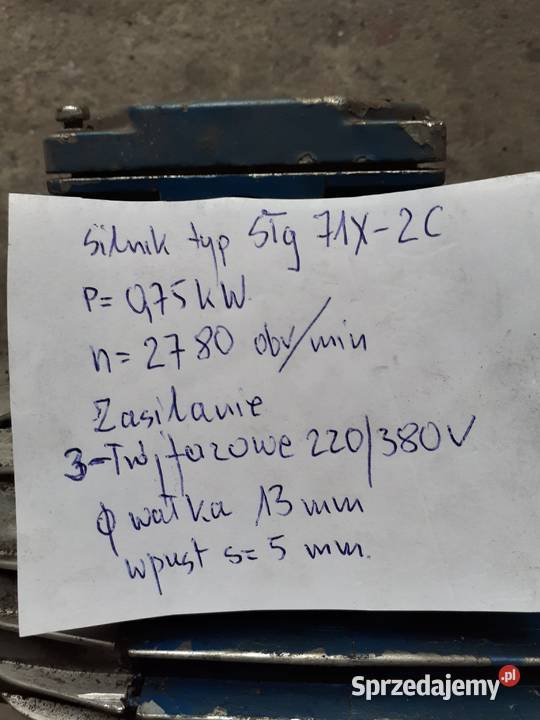 Silnik typ STg 71X-2C
P= 0,75 kW.
n= 2780 obr/min
Zasilanie
3-Trójfazowe 220/380V
ϕ wałka 13 mm
wpust s= 5 mm.
Sprzedajemy.pl